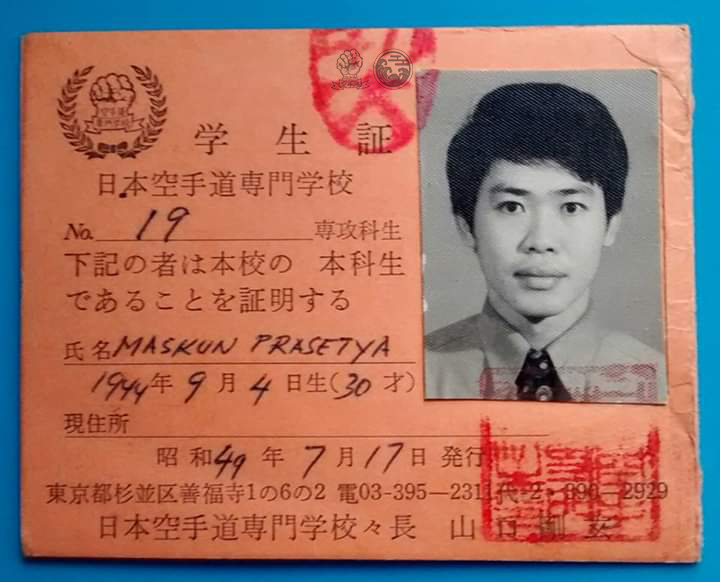 学生証
日本空手道専門学校
No. 19 専攻科生
下記の者は本校の 本科生
であることを証明する
氏名 MASKUN PRASETYA
1944年 9月 4日生(30才)
現住所
昭和49年 7月17日 発行
東京都杉並区善福寺1の6の2 電03-395-2311代・2・390-2929
日本空手道専門学校々長 山口剛玄